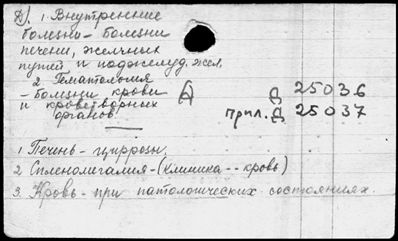 Д). 1. Внутренние
болезни - болезни
печени, желчных
путей и поджелуд. жел.
2. Гематология
- болезни крови
и кроветворных
органов.
Д Д 25036
прил. Д 25037
1. Печень - циррозы.
2. Спленомегалия - (клиника -- кровь)
3. Кровь - при патологических состояниях.